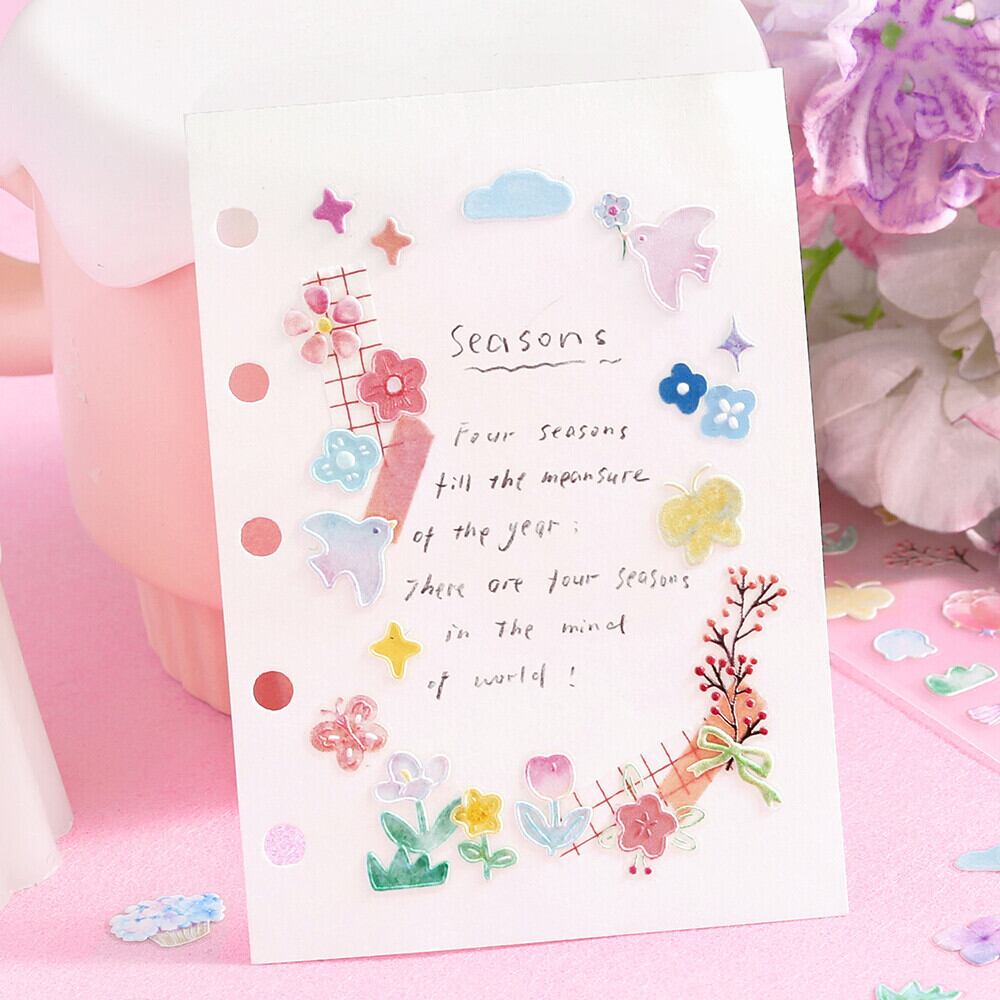 Seasons
Four seasons
fill the meansure
of the year ;
There are four seasons
in The mind
of world !